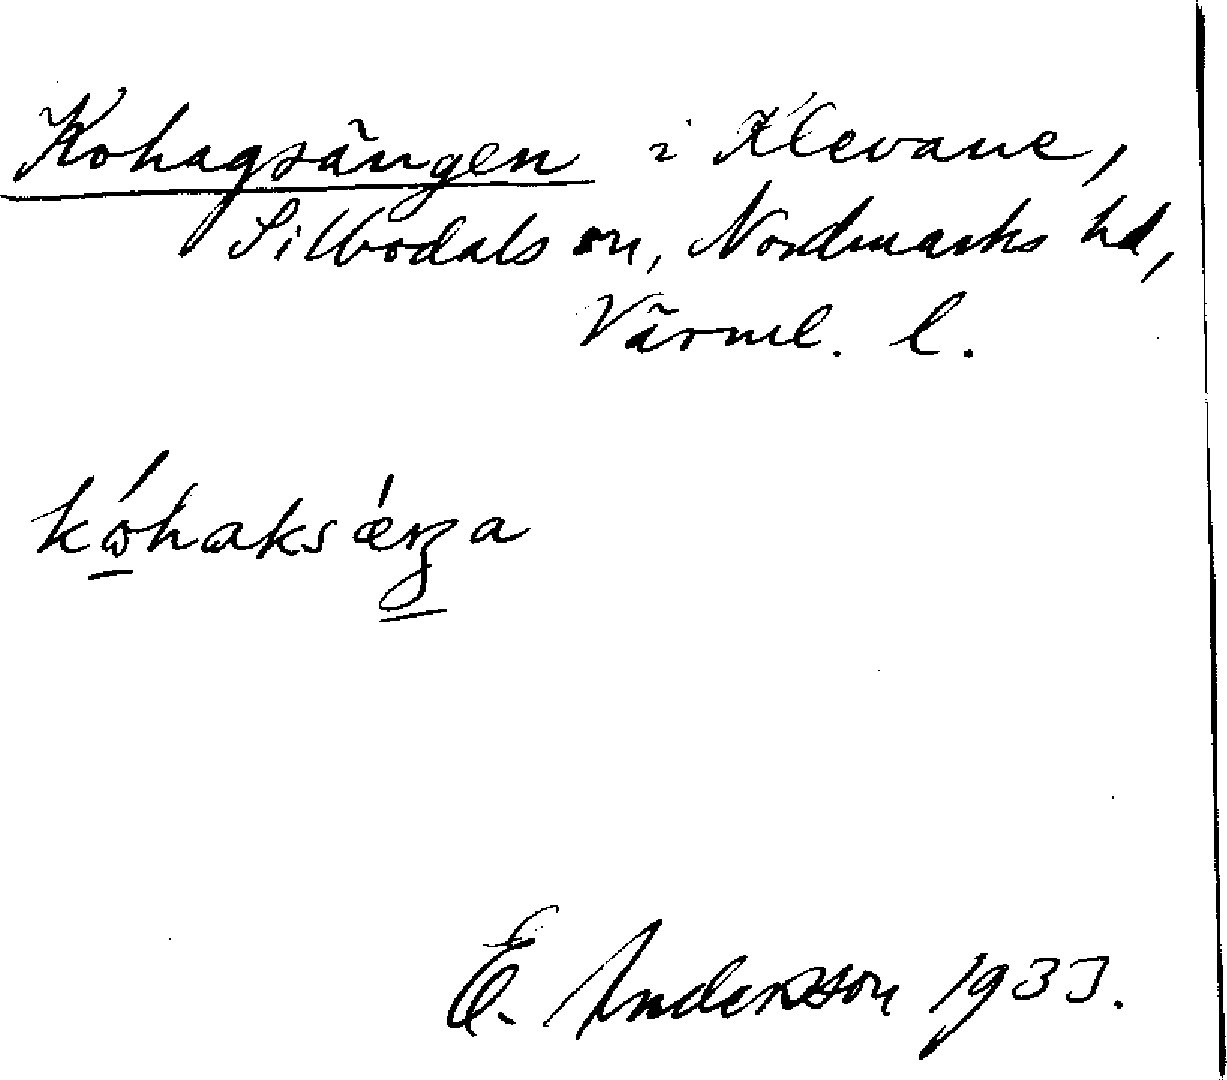 Kohagsängen i Klevane,
Silbodals sn, Nordmarks hd,
Värml. l.
kóhaksǽŋa
E. Andersson 1933.